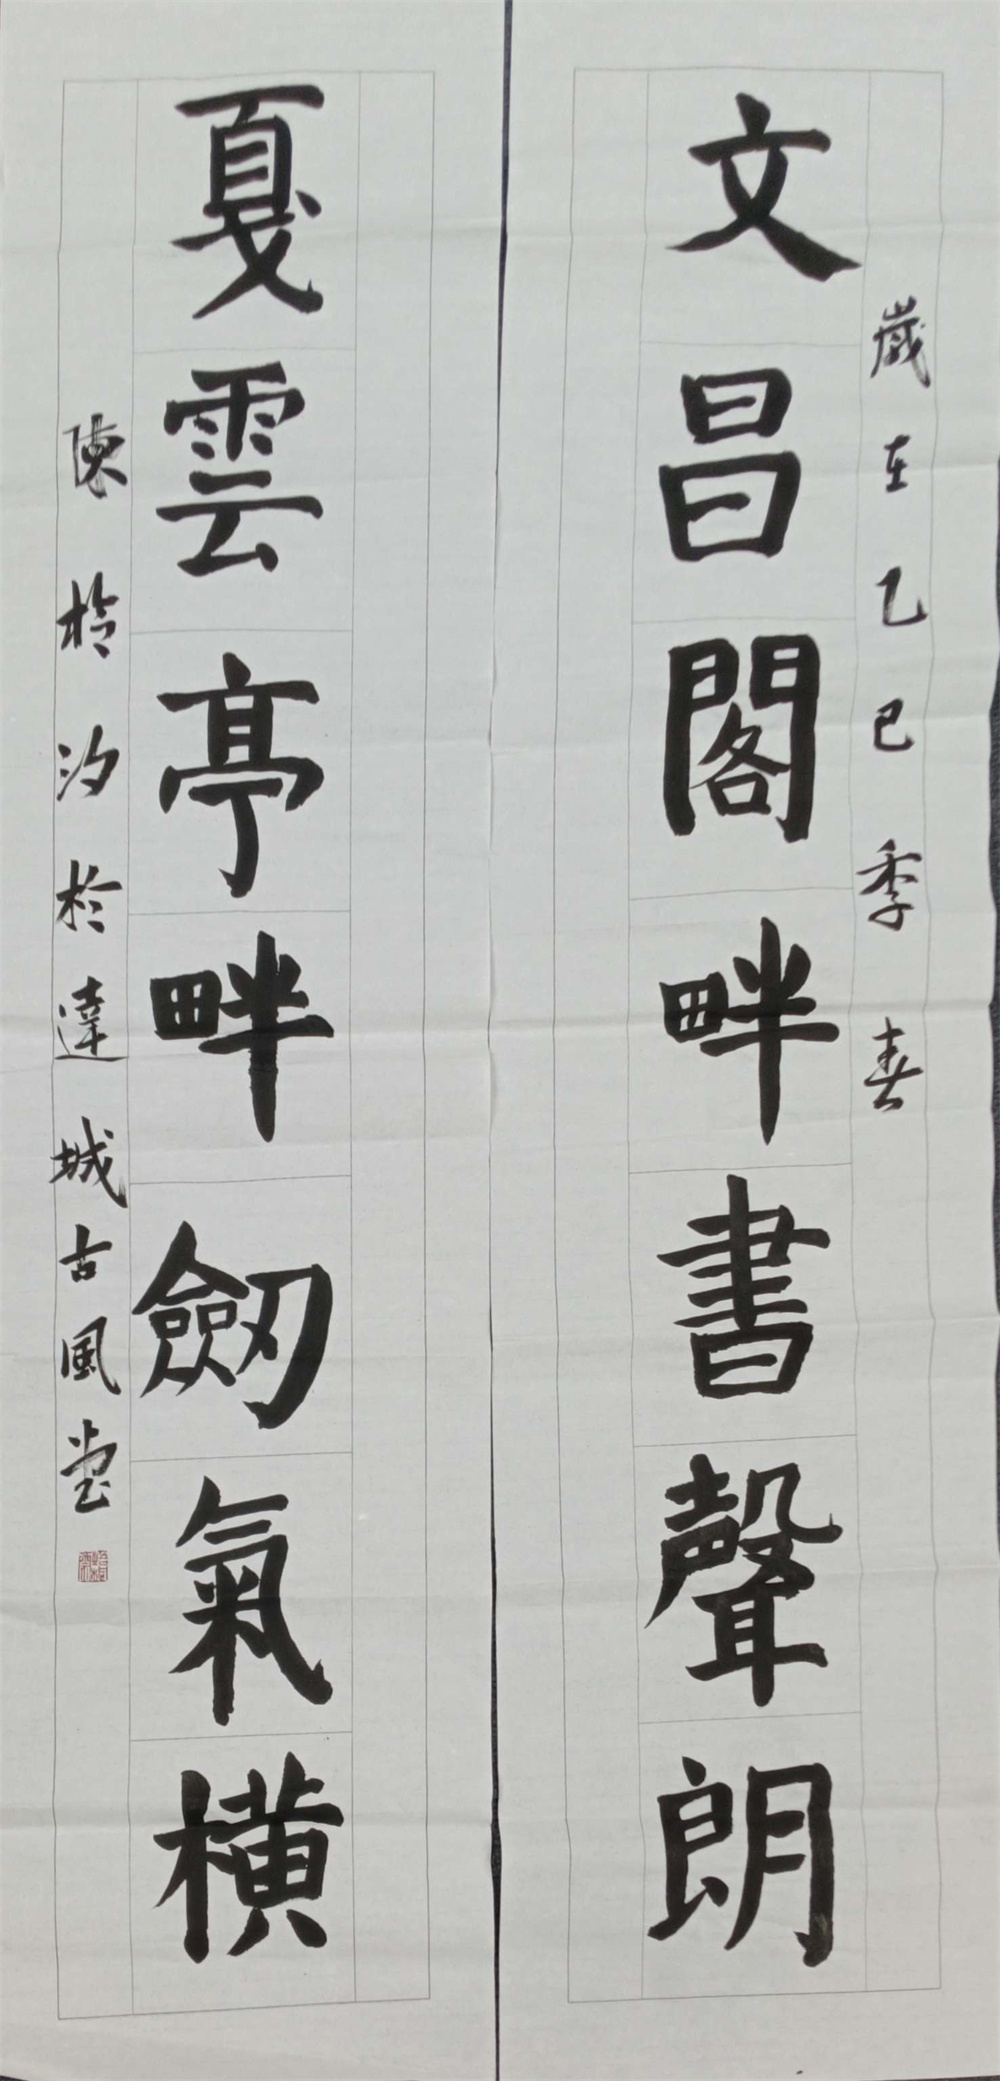 歲在乙巳季春
文昌閣畔書聲朗
戛雲亭畔劒氣橫
陳柃汐於達城古風堂